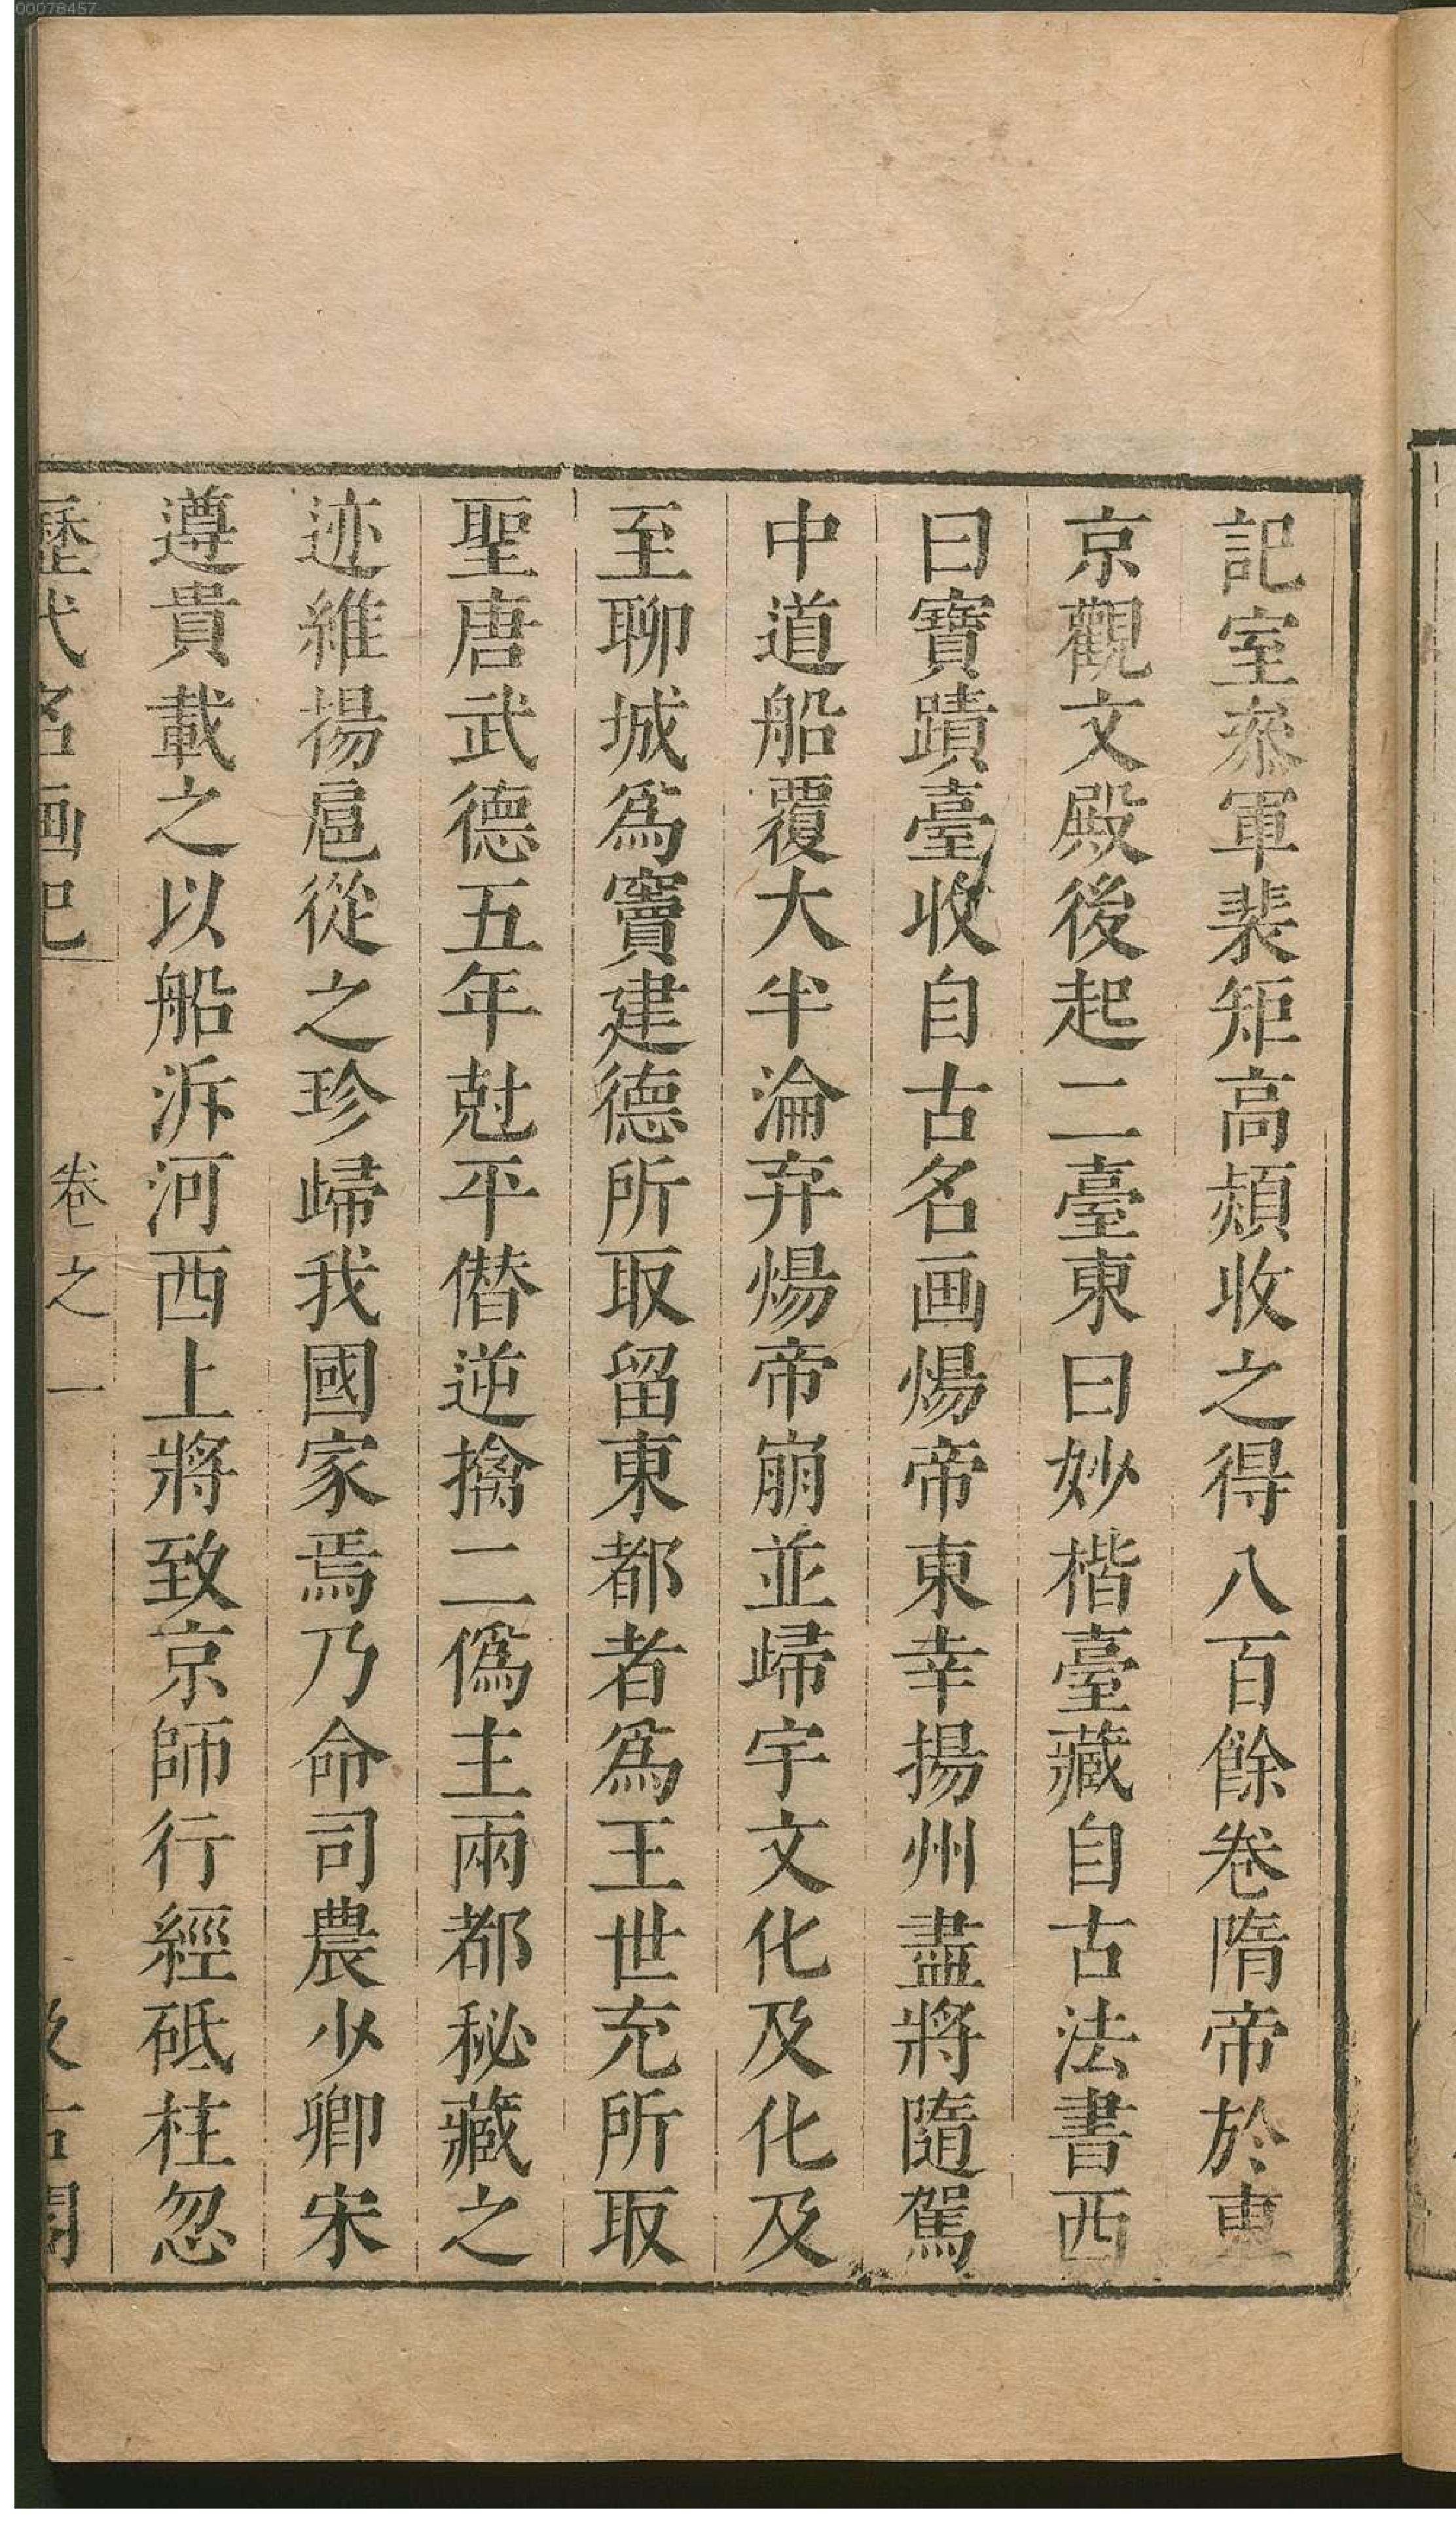 00078457
記室叅軍裴矩高熲收之得八百餘卷隋帝於東
京觀文殿後起二臺東曰妙楷臺藏自古法書西
曰寶蹟臺收自古名画煬帝東幸揚州盡將隨駕
中道船覆大半淪弃煬帝崩並歸宇文化及化及
至聊城爲竇建德所取留東都者爲王世充所取
聖唐武德五年尅平僣逆擒二僞主兩都秘藏之
迹維揚扈從之珍歸我國家焉乃命司農少卿宋
遵貴載之以船泝河西上將致京師行經砥柱忽
歷代名画記 卷之一 汲古閣